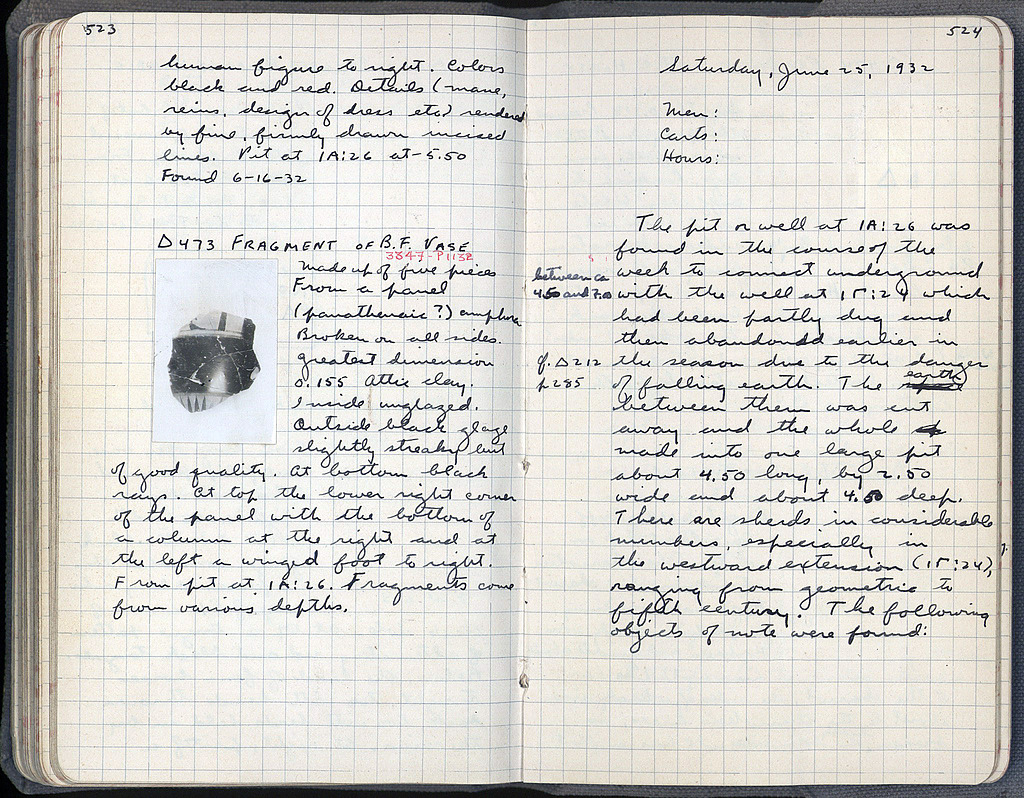 523
human figure to right. Colors
black and red. Details (mane,
reins, design of dress etc) rendered
by fine, firmly drawn incised
lines. Pit at 1A:26 at -5.50
Found 6-16-32
Δ473 FRAGMENT OF B.F. VASE
3847-P1132
Made up of five pieces
From a panel
(panathenaic?) amphora
Broken on all sides.
greatest dimension
0.155 Attic clay.
Inside unglazed.
Outside black glaze
slightly streaky but
of good quality. At bottom black
rays. At top the lower right corner
of the panel with the bottom of
a column at the right and at
the left a winged foot to right.
From pit at 1A:26. Fragments come
from various depths.
524
Saturday, June 25, 1932
Men:
Carts:
Hours:
The pit or well at 1A:26 was
found in the course of the
week to connect underground
between ca
4.50 and 7.00
with the well at 1Γ:24 which
had been partly dug and
then abandoned earlier in
cf. Δ212
p 285
the season due to the danger
of falling earth. The earth
between them was cut
away and the whole
made into one large pit
about 4.50 long, by 2.50
wide and about 4.50 deep.
There are sherds in considerable
numbers, especially in
the westward extension (1Γ:24),
ranging from geometric to
fifth century. The following
objects of note were found: